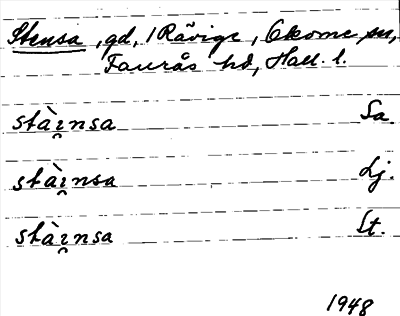 Stensa, gd, i Rävige, Okome sn,
Faurås hd, Hall. l.
stàı̯nsa Sa.
stàı̯nsa Lj.
stàı̯nsa St.
1948